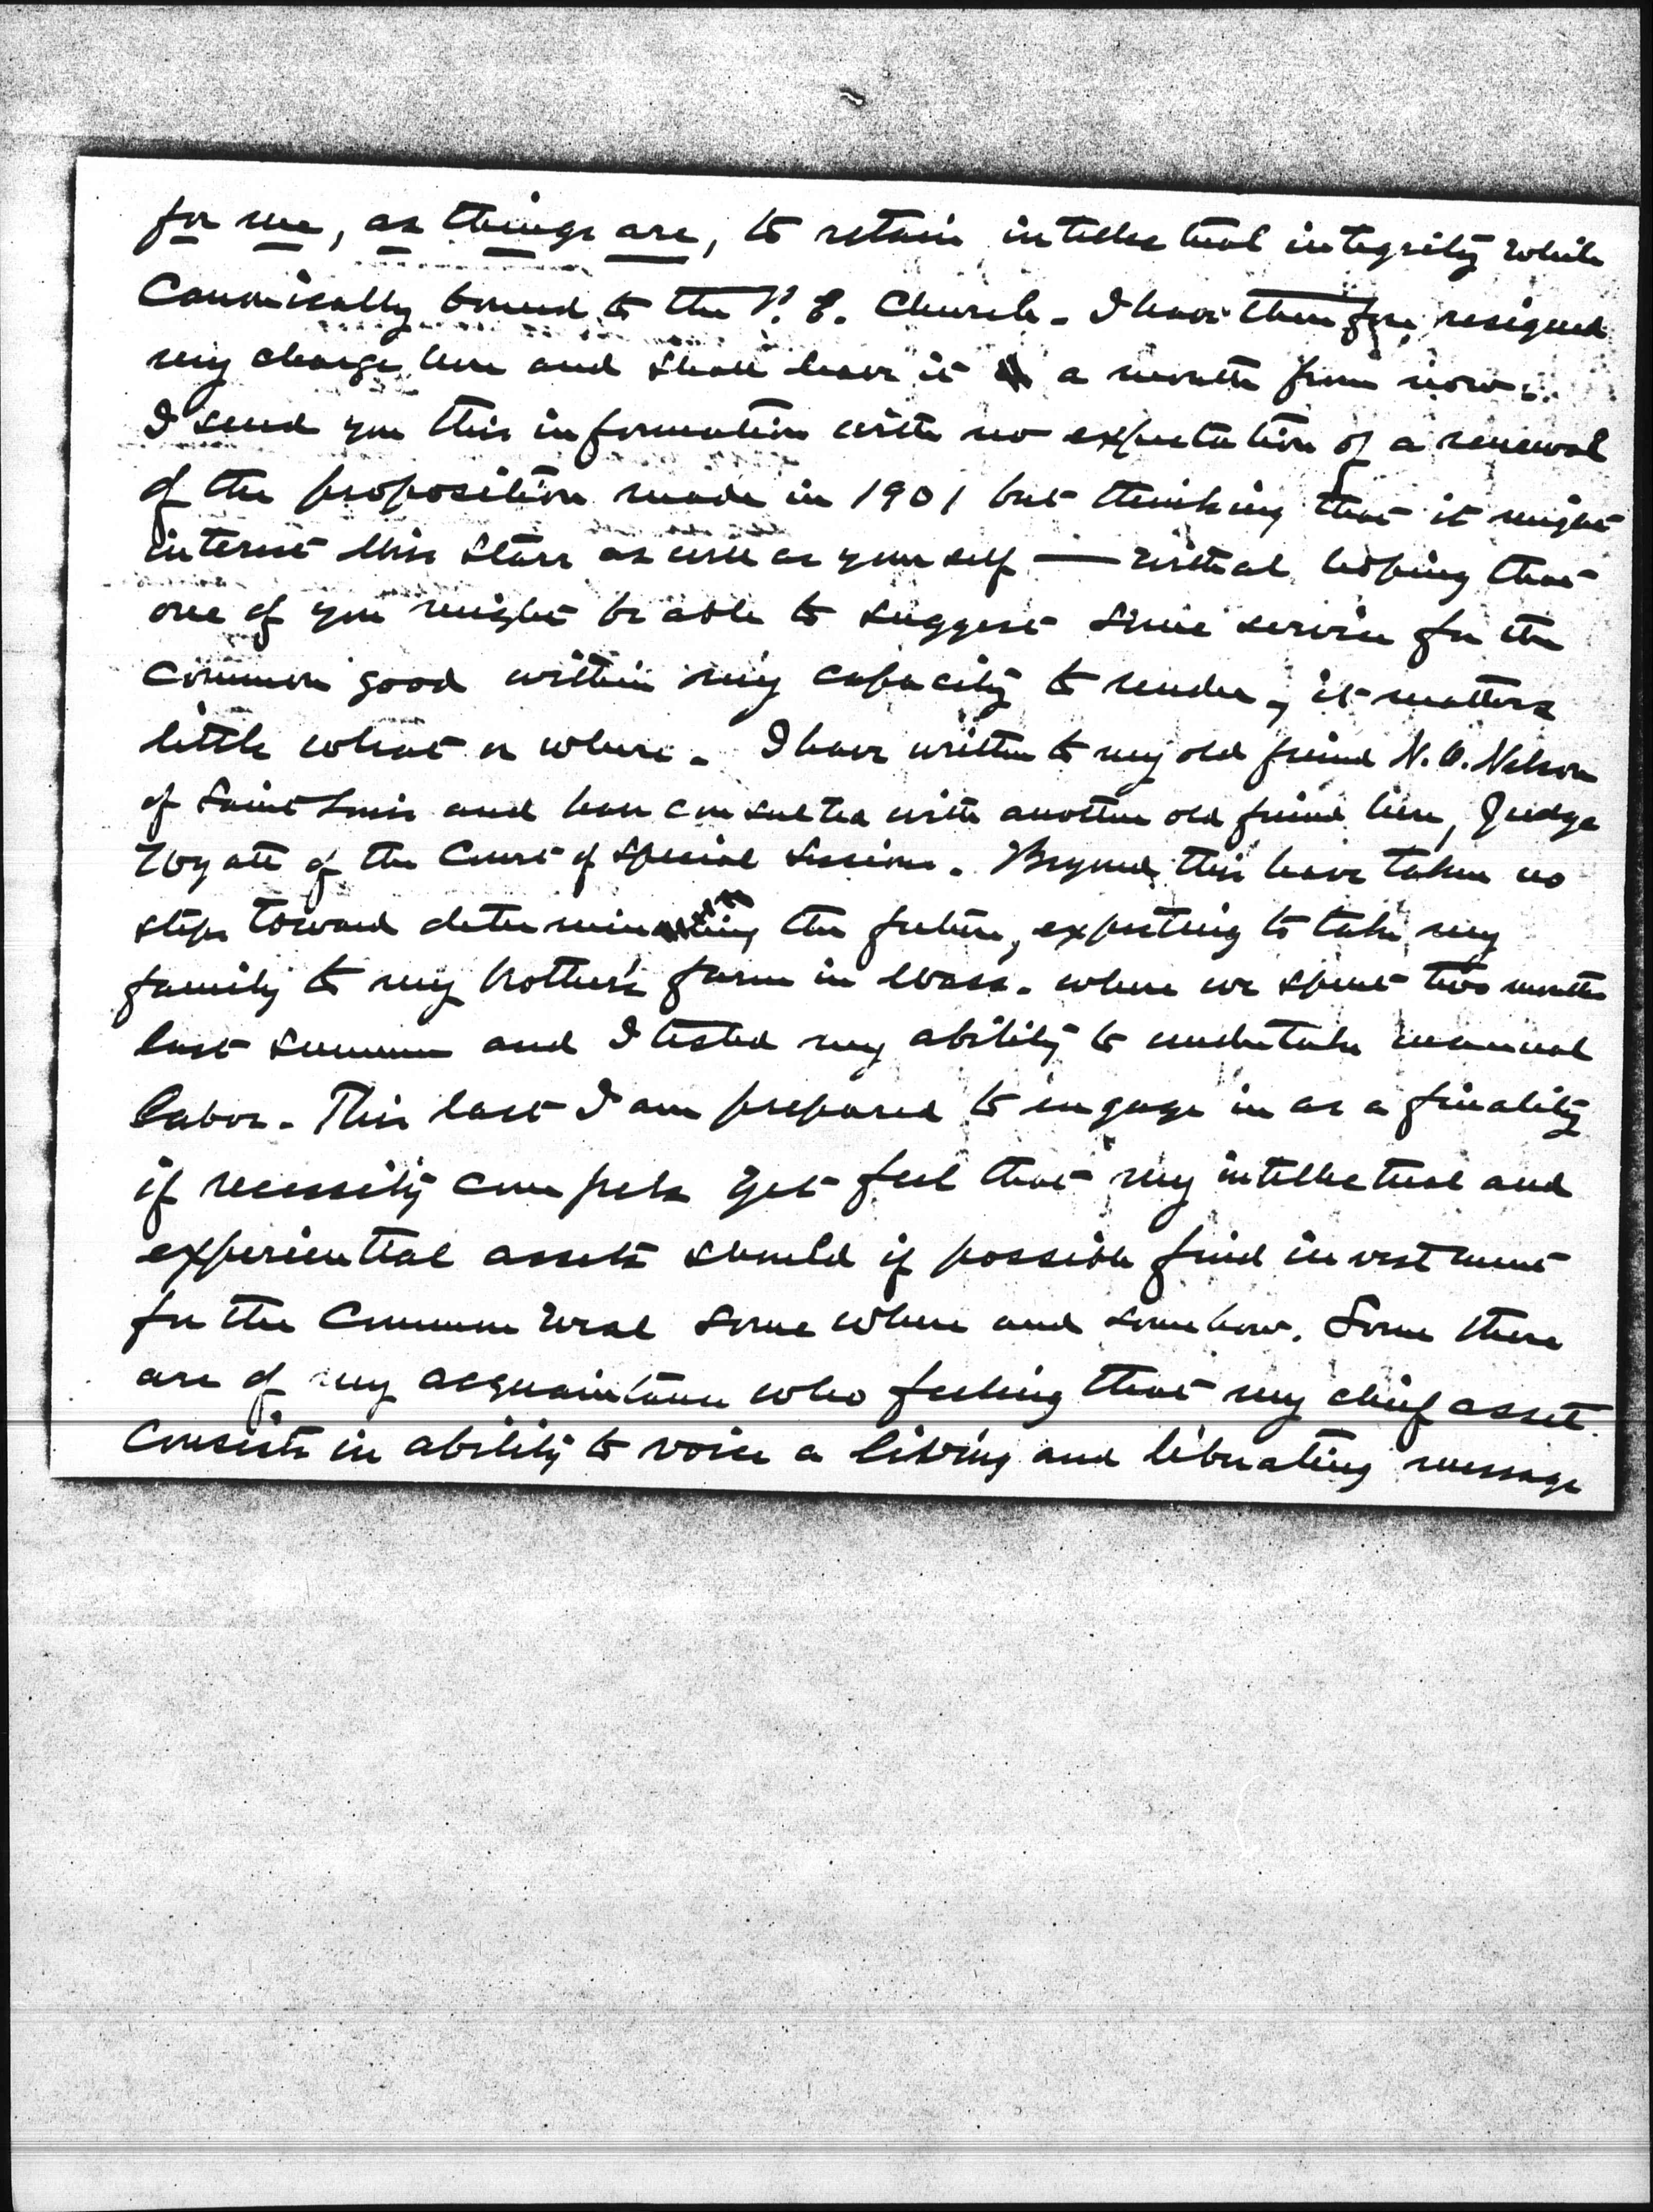 for me, as things are, to retain intellectual integrity while
Canonically bound to the P. E. Church. I have therefore, resigned
my charge here and shall leave it a month from now.
I send you this information with no expectation of a renewal
of the proposition made in 1901 but thinking that it might
interest Miss Starr as well as yourself — withal hoping that
one of you might be able to suggest some service for the
common good within my capacity to render, it matters
little what or where. I have written to my old friend N. O. Nelson
of Saint Louis and have consulted with another old friend here, Judge
Wyatt of the Court of Special Sessions. Beyond this have taken no
steps toward determining the future, expecting to take my
family to my brother's farm in Mass. where we spent two months
last summer and I tested my ability to undertake manual
labor. This last I am prepared to engage in as a finality
if necessity compels yet feel that my intellectual and
experiential assets should if possible find investment
for the Common weal some where and somehow. Some there
are of my acquaintance who feeling that my chief asset
consists in ability to voice a living and liberating message